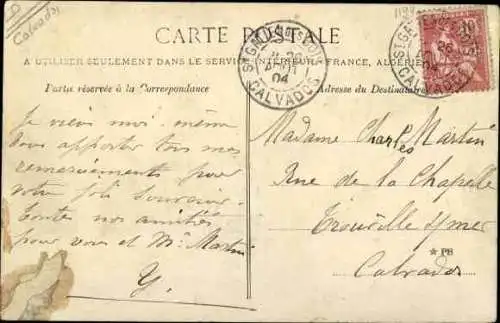 Calvados
CARTE POSTALE
A UTILISER SEULEMENT DANS LE SERVICE INTÉRIEUR (FRANCE, ALGÉRIE
Partie réservée à la Correspondance
Adresse du Destinataire
CALVADOS
04
26
Je viens moi-même
vous apporter tous mes
remerciements pour
votre joli souvenir.
Toutes nos amitiés
pour vous et Mr Martin
Y.
Madame Charles Martin
Rue de la Chapelle
Trouville s/mer
* PB
Calvados